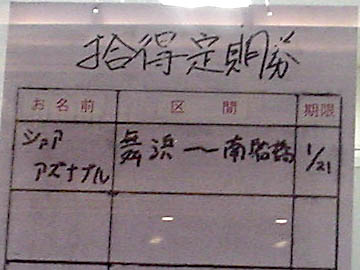 拾得定期券
お名前 区間 期限
シャア アズナブル 舞浜〜南船橋 1/21